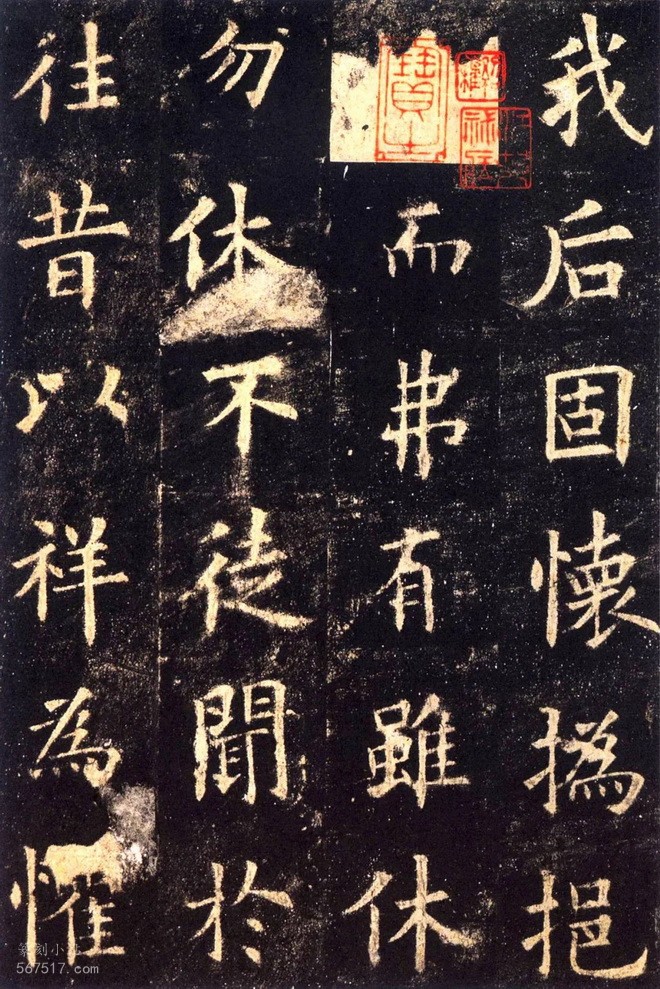 我后固懷撝挹
而弗有雖休
勿休不徒聞於
往昔以祥為懼
567517.com